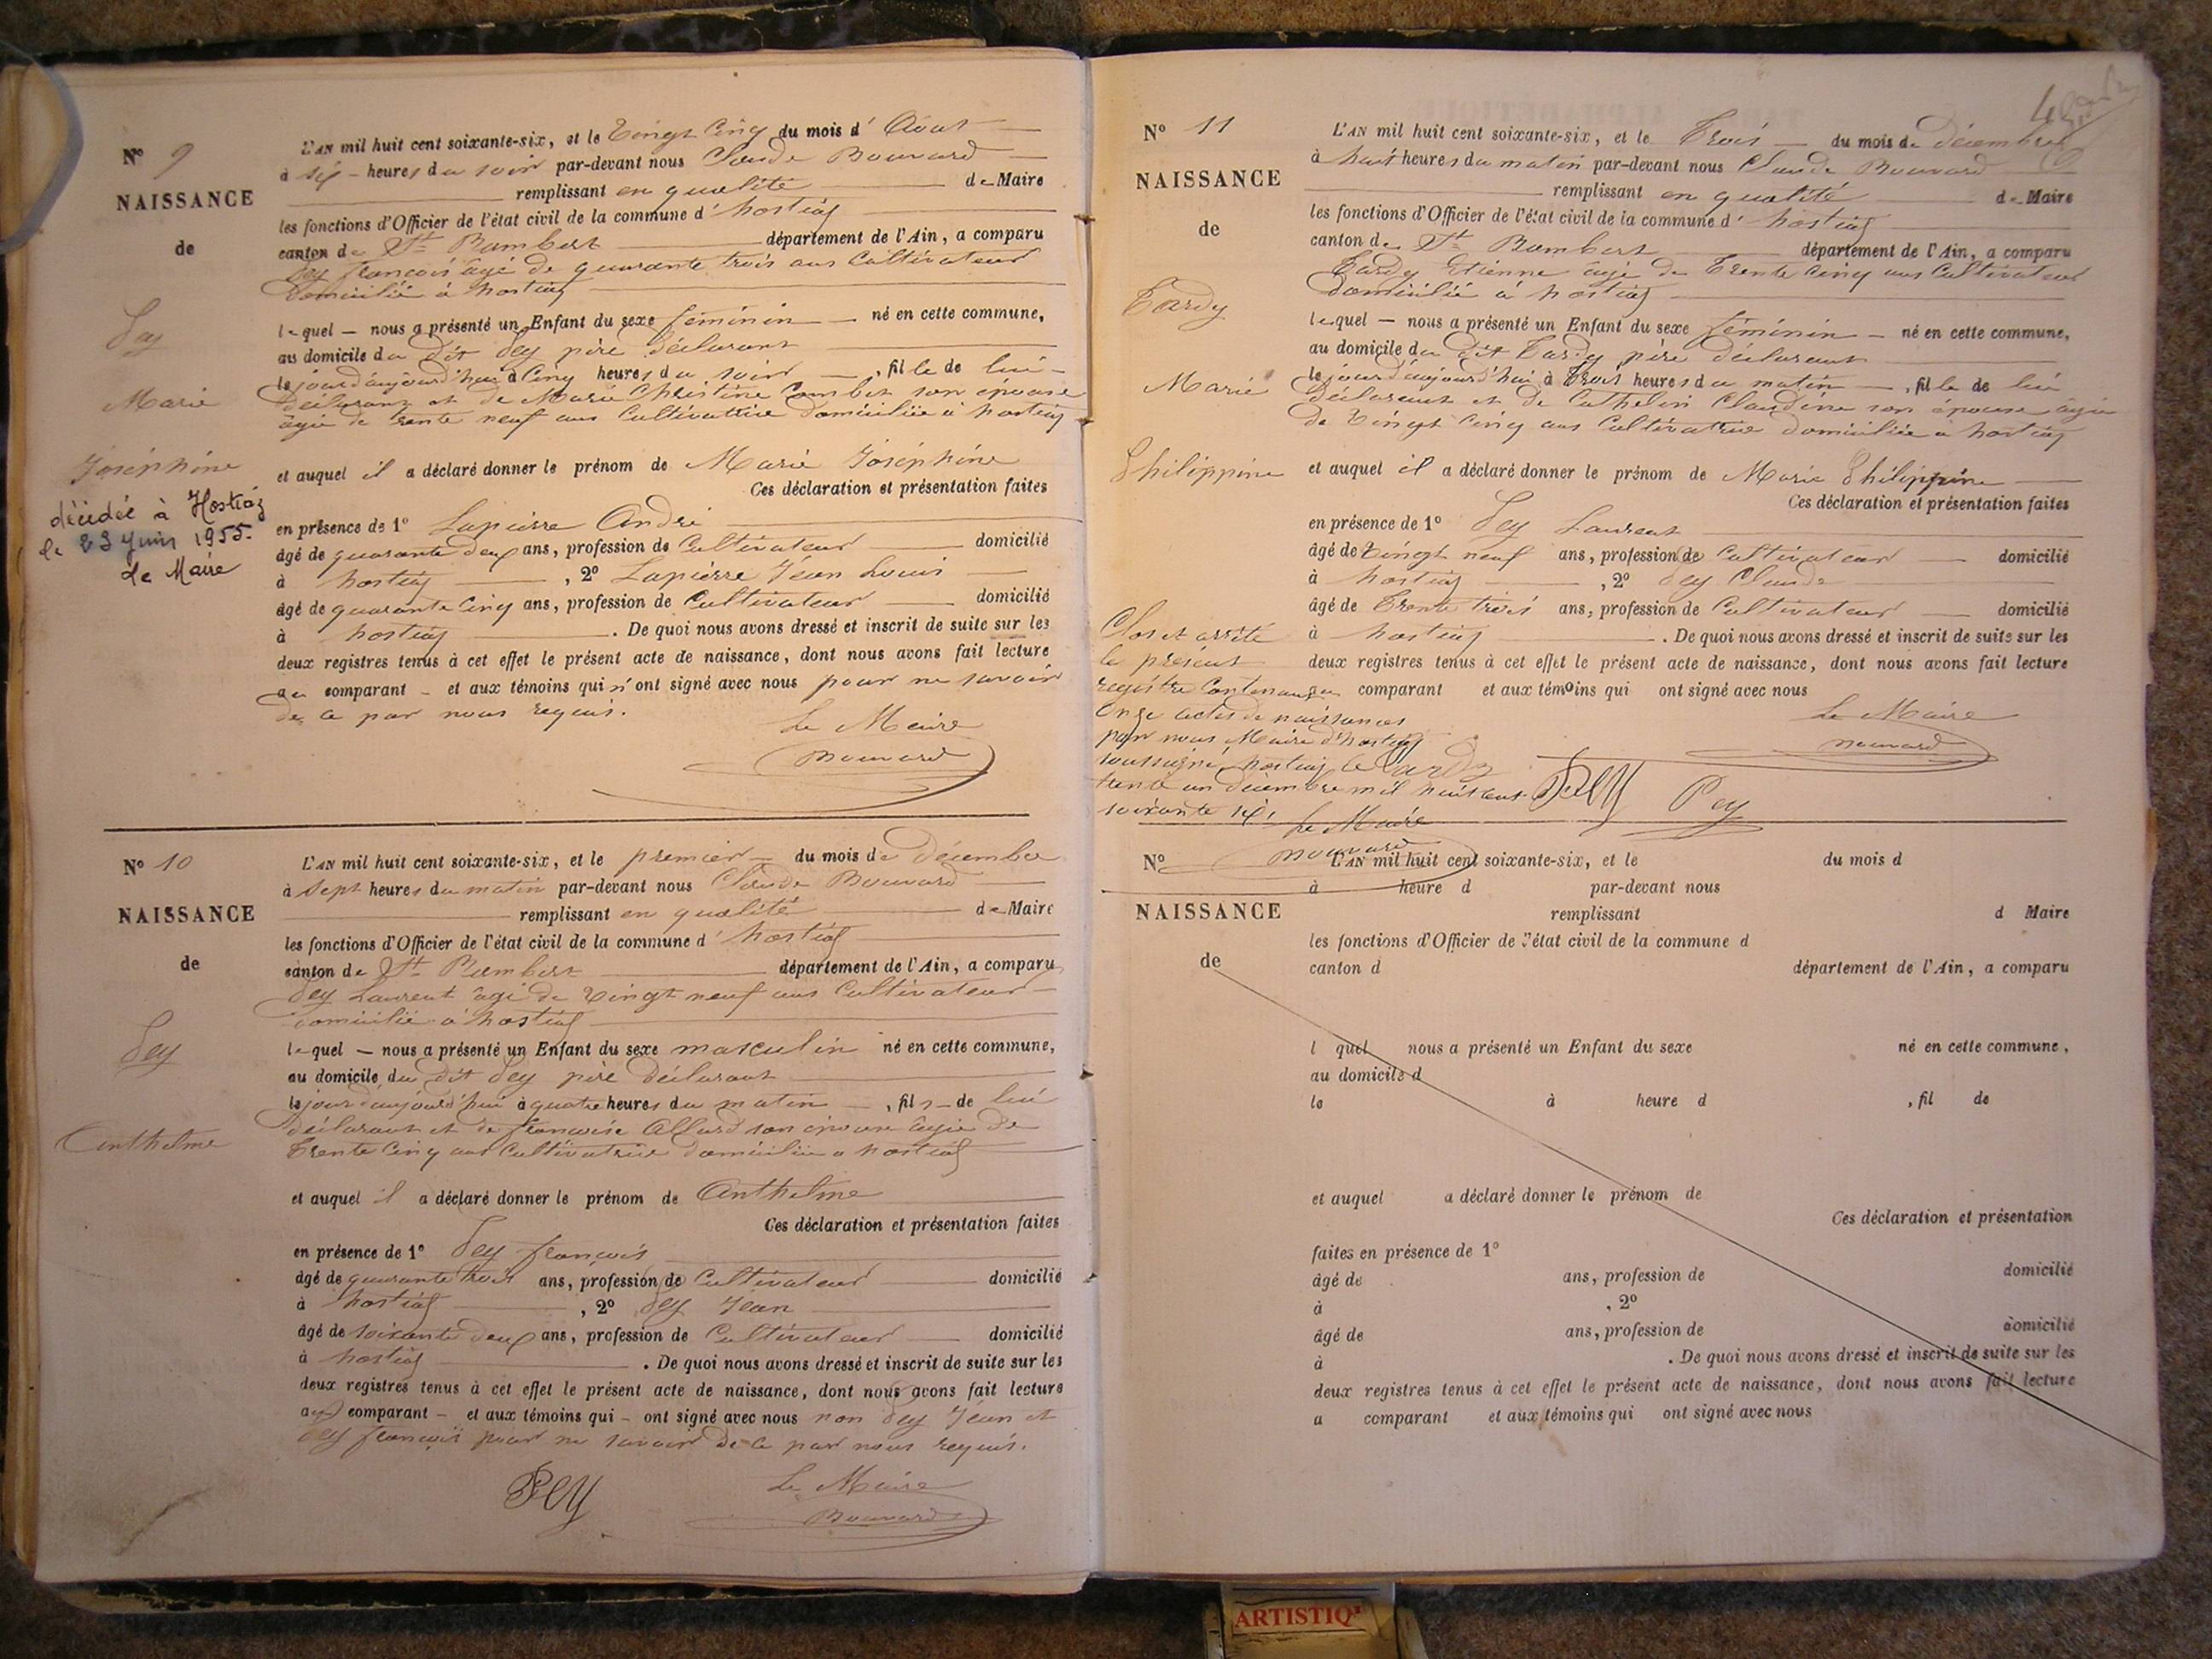 N° 9
NAISSANCE
de
Pey
Marie
Joséphine
décédée à Hostiaz
le 23 Juin 1955.
Le Maire
L'AN mil huit cent soixante-six, et le Vingt Cinq du mois d' Aout
à six heures du soir par-devant nous Claude Bouvard
remplissant en qualité de Maire
les fonctions d'Officier de l'état civil de la commune d' hostiaz
canton de St Rambert département de l'Ain, a comparu
Pey francois agé de quarante trois ans Cultivateur
domicilié à hostiaz
lequel nous a présenté un Enfant du sexe féminin né en cette commune,
au domicile du dit Pey père déclarant
le jour d'aujourd'hui à Cinq heures du soir, fille de lui
déclarant et de Marie Christine Combet son épouse
agée de trente neuf ans Cultivatrice domiciliée à hostiaz
et auquel il a déclaré donner le prénom de Marie Joséphine
Ces déclaration et présentation faites
en présence de 1° Lapierre André
âgé de quarante deux ans, profession de Cultivateur domicilié
à hostiaz, 2° Lapierre Jean Louis
âgé de quarante Cinq ans, profession de Cultivateur domicilié
à hostiaz. De quoi nous avons dressé et inscrit de suite sur les
deux registres tenus à cet effet le présent acte de naissance, dont nous avons fait lecture
au comparant et aux témoins qui n'ont signé avec nous pour ne savoir
de ce par nous requis.
Le Maire
Bouvard
N° 10
NAISSANCE
de
Pey
Anthelme
L'AN mil huit cent soixante-six, et le premier du mois de décembre
à sept heures du matin par-devant nous Claude Bouvard
remplissant en qualité de Maire
les fonctions d'Officier de l'état civil de la commune d' hostiaz
canton de St Rambert département de l'Ain, a comparu
Pey Laurent âgé de vingt neuf ans Cultivateur
domicilié à hostiaz
lequel nous a présenté un Enfant du sexe masculin né en cette commune,
au domicile du dit Pey père déclarant
le jour d'aujourd'hui à quatre heures du matin, fils de lui
déclarant et de francoise Allard son épouse âgée de
trente Cinq ans Cultivatrice domiciliée a hostiaz
et auquel il a déclaré donner le prénom de Anthelme
Ces déclaration et présentation faites
en présence de 1° Pey francois
âgé de quarante trois ans, profession de Cultivateur domicilié
à hostiaz, 2° Pey Jean
âgé de soixante deux ans, profession de Cultivateur domicilié
à hostiaz. De quoi nous avons dressé et inscrit de suite sur les
deux registres tenus à cet effet le présent acte de naissance, dont nous avons fait lecture
au comparant et aux témoins qui ont signé avec nous non Pey Jean et
Pey francois pour ne savoir de ce par nous requis.
Pey
Le Maire
Bouvard
N° 11
NAISSANCE
de
Tardy
Marie
Philippine
L'AN mil huit cent soixante-six, et le Trois du mois de décembre
à huit heures du matin par-devant nous Claude Bouvard
remplissant en qualité de Maire
les fonctions d'Officier de l'état civil de la commune d' hostiaz
canton de St Rambert département de l'Ain, a comparu
Tardy Etienne agé de Trente Cinq ans Cultivateur
domicilié à hostiaz
lequel nous a présenté un Enfant du sexe féminin né en cette commune,
au domicile du dit Tardy père déclarant
le jour d'aujourd'hui à Trois heures du matin, fille de lui
déclarant et de Cathelin Claudine son épouse âgée
de Vingt Cinq ans Cultivatrice domiciliée à hostiaz
et auquel il a déclaré donner le prénom de Marie Philippine
Ces déclaration et présentation faites
en présence de 1° Pey Laurent
âgé de vingt neuf ans, profession de Cultivateur domicilié
à hostiaz, 2° Pey Claude
âgé de Trente trois ans, profession de Cultivateur domicilié
à hostiaz. De quoi nous avons dressé et inscrit de suite sur les
deux registres tenus à cet effet le présent acte de naissance, dont nous avons fait lecture
au comparant et aux témoins qui ont signé avec nous
Le Maire
Bouvard
Tardy Pey Pey
Clos et arrêté
le présent
registre Contenant
Onze actes de naissances
par nous Maire d'hostiaz
soussigné, hostiaz le
trente un décembre mil huit cent
soixante six,
Le Maire
Bouvard
N°
NAISSANCE
de
L'AN mil huit cent soixante-six, et le du mois d
à heure d par-devant nous
remplissant d Maire
les fonctions d'Officier de l'état civil de la commune d
canton d département de l'Ain, a comparu
l quel nous a présenté un Enfant du sexe né en cette commune,
au domicile d
le à heure d , fil de
et auquel a déclaré donner le prénom de
Ces déclaration et présentation
faites en présence de 1°
âgé de ans, profession de domicilié
à , 2°
âgé de ans, profession de domicilié
à . De quoi nous avons dressé et inscrit de suite sur les
deux registres tenus à cet effet le présent acte de naissance, dont nous avons fait lecture
a comparant et aux témoins qui ont signé avec nous
ARTISTIQ